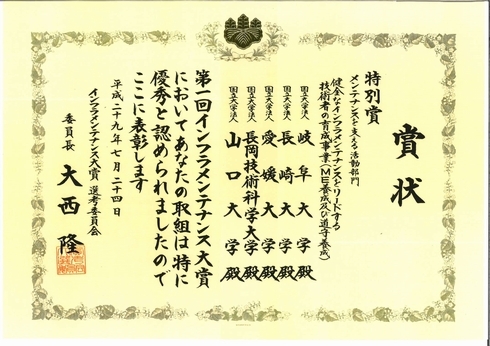 賞状
特別賞
メンテナンスを支える活動部門
健全なインフラメンテナンスをリードする
技術者の育成事業(ME養成及び道守養成)
国立大学法人 岐阜大学殿
国立大学法人 長崎大学殿
国立大学法人 愛媛大学殿
国立大学法人 長岡技術科学大学殿
国立大学法人 山口大学殿
第一回インフラメンテナンス大賞
においてあなたの取組は特に
優秀と認められましたので
ここに表彰します
平成二十九年七月二十四日
インフラメンテナンス大賞 選考委員会
委員長 大西隆